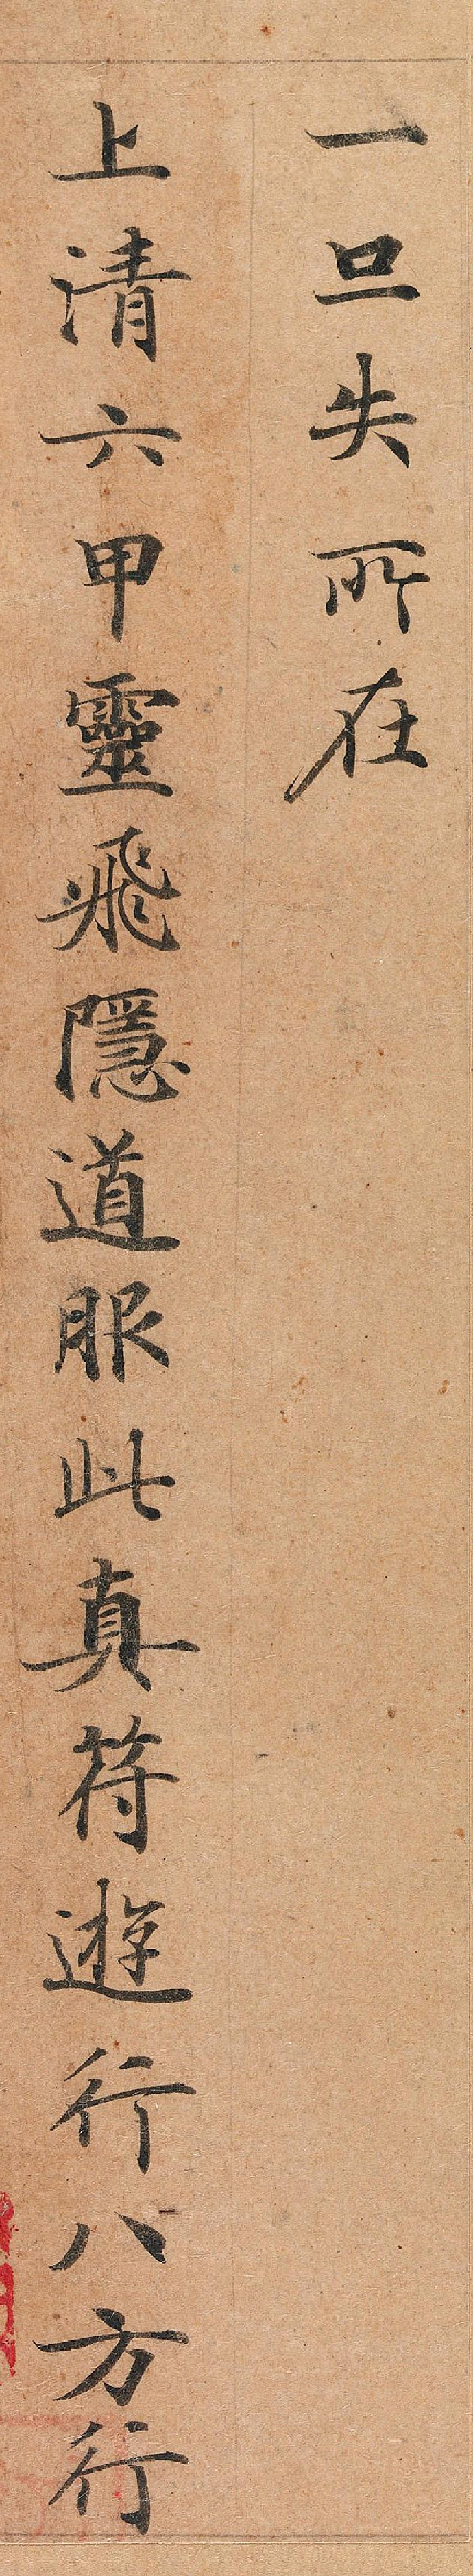 一旦失所在
上清六甲靈飛隱道服此真符遊行八方行